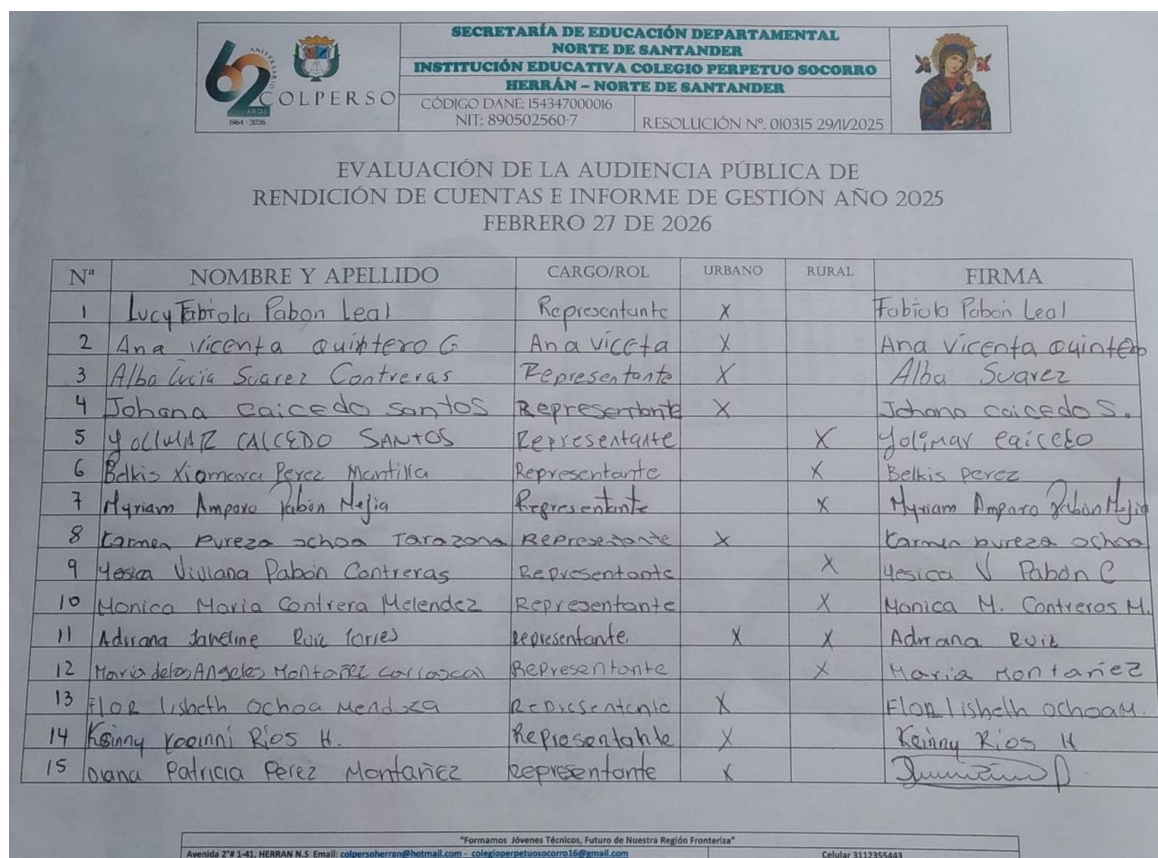 62 ANIVERSARIO
AÑOS
1964 - 2026
COLPERSO
SECRETARÍA DE EDUCACIÓN DEPARTAMENTAL
NORTE DE SANTANDER
INSTITUCIÓN EDUCATIVA COLEGIO PERPETUO SOCORRO
HERRÁN – NORTE DE SANTANDER
CÓDIGO DANE: 154347000016
NIT: 890502560-7 RESOLUCIÓN Nº. 010315 29/11/2025
EVALUACIÓN DE LA AUDIENCIA PÚBLICA DE
RENDICIÓN DE CUENTAS E INFORME DE GESTIÓN AÑO 2025
FEBRERO 27 DE 2026
Nª NOMBRE Y APELLIDO CARGO/ROL URBANO RURAL FIRMA
1 Lucy Fabiola Pabon Leal Representante X Fabiola Pabon Leal
2 Ana Vicenta Quintero G Ana Viceta X Ana Vicenta Quintero
3 Alba Lucia Suarez Contreras Representante X Alba Suarez
4 Johana Caicedo Santos Representante X Johana Caicedo S.
5 Yolimar CAICEDO SANTOS Representante X Yolimar Caicedo
6 Belkis Xiomara Perez Mantilla Representante X Belkis Perez
7 Myriam Amparo Pabon Mejia Representante X Myriam Amparo Pabon Mejia
8 Karmen Pureza Ochoa Tarazona Representante X Karmen Pureza Ochoa
9 Yesica Viviana Pabón Contreras Representante X Yesica V Pabón C
10 Monica Maria Contrera Melendez Representante X Monica M. Contreras M.
11 Adriana Ruiz Torres Representante. X X Adriana Ruiz
12 Maria de los Angeles Montañez Carrascal Representante X Maria Montañez
13 Flor Lisbeth Ochoa Mendoza Representante X Flor Lisbeth Ochoa M.
14 Keinny Rios H. Representante X Keinny Rios H
15 Diana Patricia Perez Montañez Representante X
"Formamos Jóvenes Técnicos, Futuro de Nuestra Región Fronteriza"
Avenida 2ª# 1-41, HERRAN N.S Email: colpersoherran@hotmail.com - colegioperpetuosocorro16@gmail.com Celular 3112355443